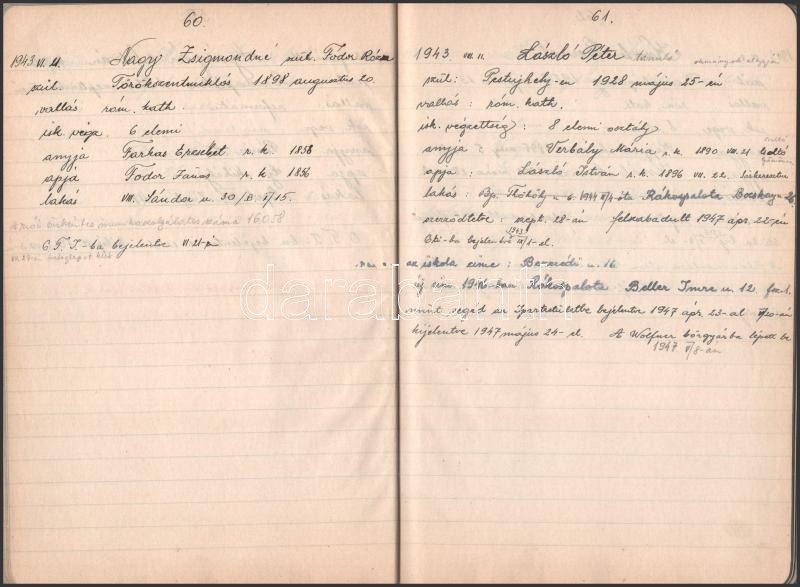 60.
1943 VII. 21. Nagy Zsigmondné szül. Fodor Rózsa
szül. Törökszentmiklós 1898 augusztus 20.
vallás róm. kath.
isk. végz. 6 elemi
anyja Farkas Erzsébet r. k. 1858
apja Fodor János r. k. 1856
lakás VIII. Sándor u. 30/B I/15.
száma 16058
O.T.I.-ba bejelentve VII. 21-én
61.
1943 VII. 11. László Péter tanuló okmányok alapján
szül: Pestujhely-en 1928 május 25-én
vallás: róm. kath.
isk. végzettség: 8 elemi osztály
anyja Verbály Mária r. k. 1890 VIII. 21
apja: László István r. k. 1896 VII. 22.
lakás: Bp. Thököly u 6. 1944 óta Rákospalota Bocskay u.
szerződtetve: szept. 28-án felszabadult 1947 ápr. 22-én
Oti-ba bejelentve 1943
az iskola címe: u. 16
új cím 1946-ban Rákospalota Beller Imre u. 12. fszt.
mint segéd az Ipartestületbe bejelentve 1947 ápr. 23-al
kijelentve 1947 május 24-el. A Wolfner bőrgyárba lépett be
1947 V/8-án
darabanth